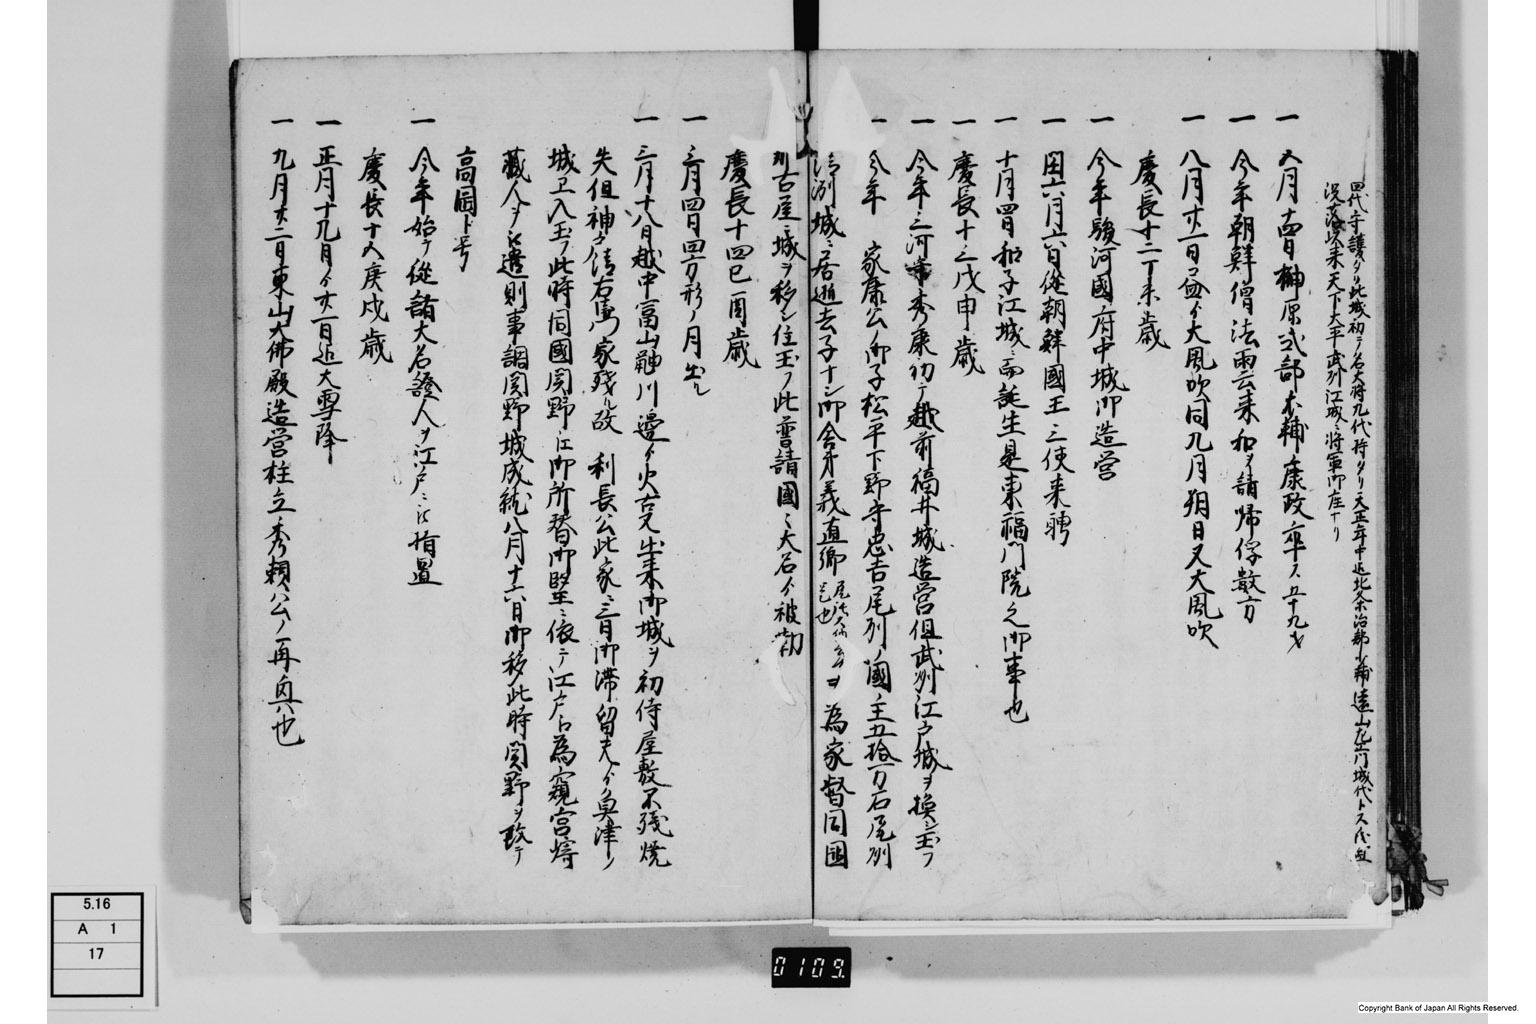 四代守護タリ此城初テ名大将九代持タリ天正年中近北条治部少輔遠山左衛門城代トス氏直
没落以来天下太平武列江城ニ将軍御座ナリ
一 五月十四日榊原式部太輔康政卒ス五十九才
一 今年朝鮮僧法雨云来和ヲ請帰俘数万
一 八月廿一日ヨリ大風吹同九月朔日又大風吹
慶長十二丁未歳
一 今年駿河國府中城御造営
一 閏六月六日從朝鮮國王三使来聘
一 十月四日和子江城ニ而誕生是東福門院之御事也
一 慶長十三戊申歳
一 今年三河守秀康初テ越前福井城造営但武列江戸城ヲ換玉フ
一 今年 家康公ノ御子松平下野守忠吉尾列ノ國主五拾万石尾列
清洲城ニ居逝去子ナシ御舎弟義直卿尾張大納言是也ヲ為家督同國
名古屋ニ城ヲ移シ住玉フ此普請國々大名ヘ被助
慶長十四己酉歳
一 三月四日四方形ノ月出ル
一 三月十八日越中富山鼬川邊ヨリ火出来御城ヲ初侍屋敷不残焼
失但神戸清右衛門家残ル故 利長公此家ニ三日御滞留夫ヨリ魚津ノ
城エ入玉フ此時同國関野江御所替御望ニ依テ江戸為窺宮﨑
蔵人ヲ被遣則事調関野城成就八月十六日御移此時関野ヲ改テ
高岡ト号
一 今年始テ從諸大名證人ヲ江戸ニ被指置
慶長十五庚戌歳
一 正月十九日ヨリ廿一日迄大雪降
一 九月廿二日東山大佛殿造営柱立秀頼公ノ再興也
5.16
A 1
17
0109.
Copyright Bank of Japan All Rights Reserved.